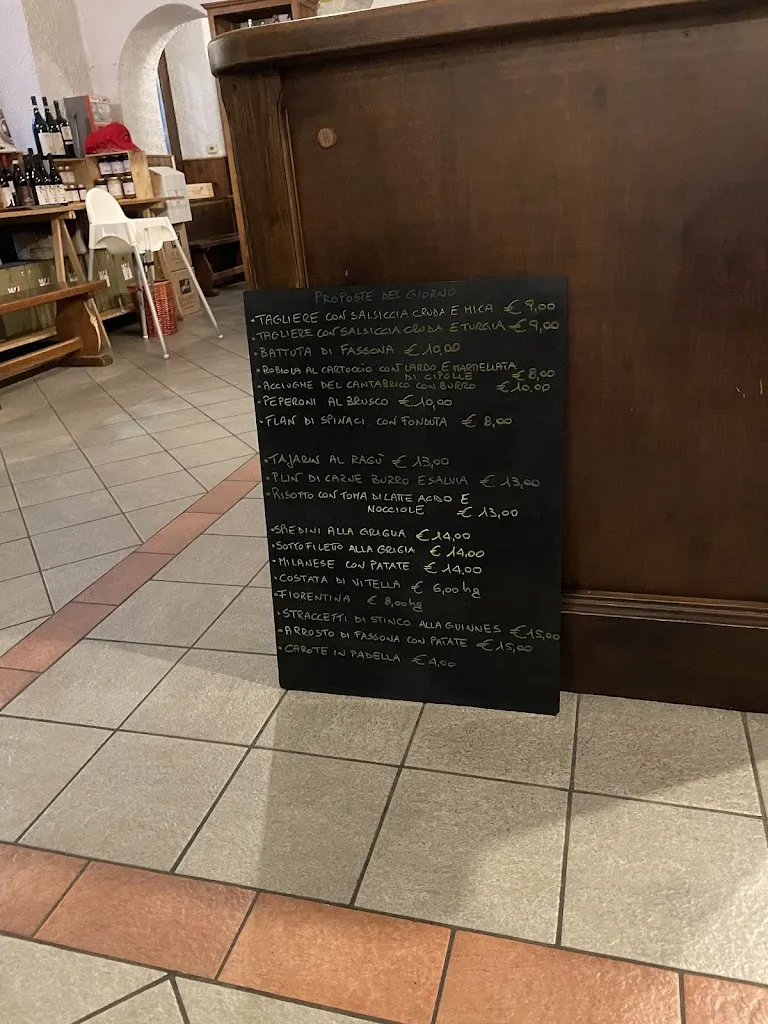 PROPOSTE DEL GIORNO
• TAGLIERE CON SALSICCIA CRUDA E MICA € 9,00
• TAGLIERE CON SALSICCIA CRUDA E TURGIA € 9,00
• BATTUTA DI FASSONA € 10,00
• ROBIOLA AL CARTOCCIO CON LARDO E MARMELLATA
DI CIPOLLE € 8,00
• ACCIUGHE DEL CANTABRICO CON BURRO € 10,00
• PEPERONI AL BRUSCO € 10,00
• FLAN DI SPINACI CON FONDUTA € 8,00
• TAJARIN AL RAGÙ € 13,00
• PLIN DI CARNE BURRO E SALVIA € 13,00
• RISOTTO CON TOMA DI LATTE ACIDO E
NOCCIOLE € 13,00
• SPIEDINI ALLA GRIGLIA € 14,00
• SOTTOFILETO ALLA GRIGIA € 14,00
• MILANESE CON PATATE € 14,00
• COSTATA DI VITELLA € 6,00 hg
• FIORENTINA € 8,00 hg
• STRACCETTI DI STINCO ALLA GUINNES € 15,00
• ARROSTO DI FASSONA CON PATATE € 15,00
• CAROTE IN PADELLA € 4,00